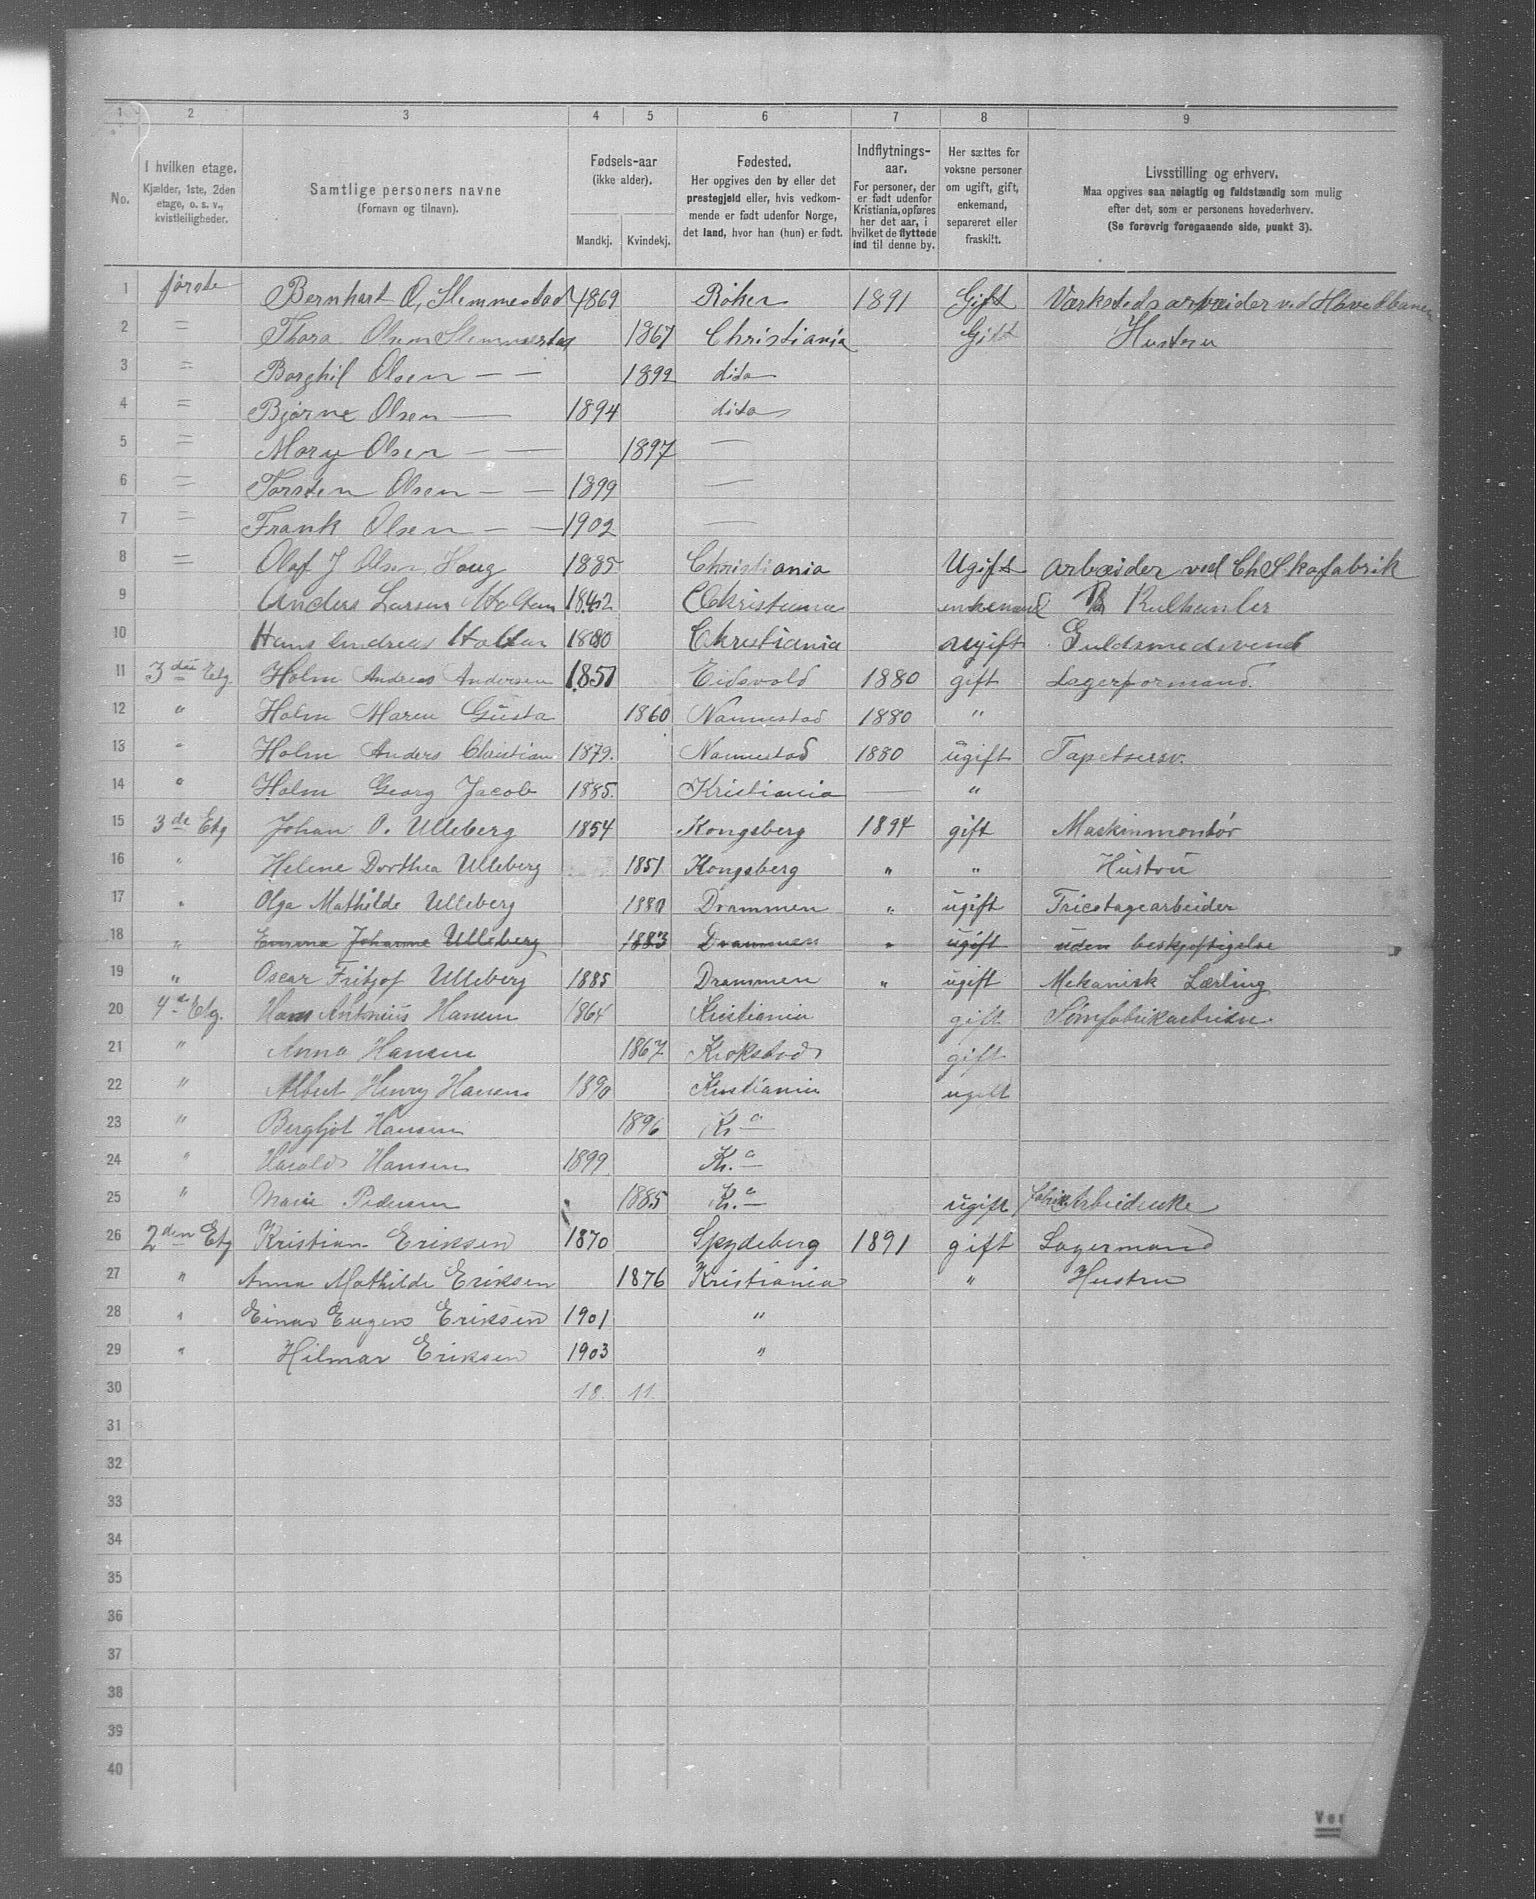 1 2 3 4 5 6 7 8 9
No.
I hvilken etage.
Kjælder, 1ste, 2den
etage, o. s. v.,
kvistleiligheder.
Samtlige personers navne
(Fornavn og tilnavn).
Fødsels-aar
(ikke alder).
Mandkj. Kvindekj.
Fødested.
Her opgives den by eller det
prestegjeld eller, hvis vedkom-
mende er født udenfor Norge,
det land, hvor han (hun) er født.
Indflytnings-
aar.
For personer, der
er født udenfor
Kristiania, opføres
her det aar, i
hvilket de flyttede
ind til denne by.
Her sættes for
voksne personer
om ugift, gift,
enkemand,
separeret eller
fraskilt.
Livsstilling og erhverv.
Maa opgives saa nøiagtig og fuldstændig som mulig
efter det, som er personens hovederhverv.
(Se forøvrig foregaaende side, punkt 3).
1 første Bernhart O, Slemmestad 1869 Røken 1891 Gift Værkstedsarbeider ved Hovedbanen
2 = Thora Olsen Slemmestad 1867 Christiania Gift Hustru
3 = Borghil Olsen — — 1892 dito
4 = Bjørne Olsen — 1894 dito
5 = Mary Olsen — — 1897 —
6 = Torsten Olsen — — 1899 —
7 = Frank Olsen — — 1902 —
8 = Olaf J Olsen Houg 1885 Christiania Ugift Arbeider ved Ch Skofabrik
9 Anders Larsen Holtan 1842 Christiania enkemand Kulhanler
10 Hans Andreas Holtan 1880 Christiania ugift Guldsmedsvend
11 3die Etg Holm Andreas Andersen 1851 Eidsvold 1880 gift Lagerformand.
12 " Holm Maren Gusta 1860 Nannestad 1880 "
13 " Holm Anders Christian 1879. Nannestad 1880 ugift Tapetsersv.
14 " Holm Georg Jacob 1885. Kristiania — "
15 3de Etg Johan O. Ulleberg 1854 Kongsberg 1894 gift Maskinmontør
16 " Helene Dorthea Ulleberg 1851 Kongsberg " " Hustru
17 " Olga Mathilde Ulleberg 1880 Drammen " ugift Tricotagearbeider
18 " Emma Johanne Ulleberg 1883 Drammen " ugift uden beskjæftigelse
19 " Oscar Fritjof Ulleberg 1885 Drammen " ugift Mekanisk Lærling
20 4de Etg. Hans Antonius Hansen 1864 Kristiania gift Sømfabrikarbeider.
21 " Anna Hansen 1867 Krokstad gift
22 " Albert Henry Hansen 1890 Kristiania ugift
23 " Bergljot Hansen 1896 Kr.a
24 " Harald Hansen 1899 Kr.a
25 " Marie Pedersen 1885 Kr.a ugift fabrikArbeiderske
26 2den Etg Kristian Eriksen 1870 Spydeberg 1891 gift Lagermand
27 " Anna Mathilde Eriksen 1876 Kristiania " Hustru
28 " Einar Eugen Eriksen 1901 "
29 " Hilmar Eriksen 1903 "
30 18. 11.
31
32
33
34
35
36
37
38
39
40